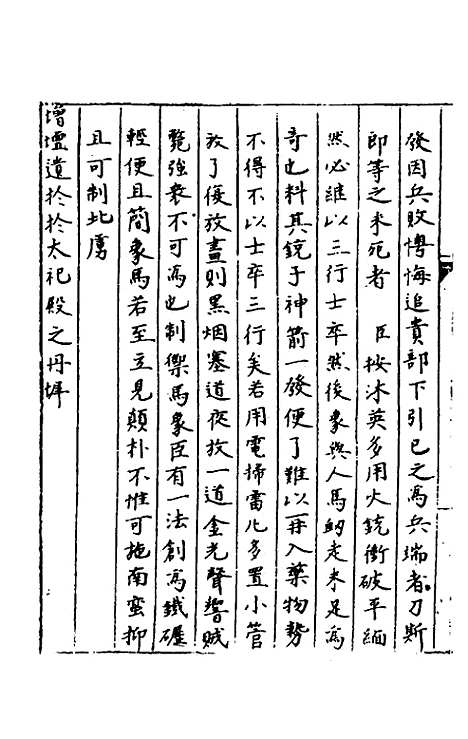 發因兵敗愕悔追責部下引已之為兵端者刀斯
即等之来死者　臣按沐英多用火銃衝破平緬
然必進以三行士卒然後象與人馬𨚫走未足為
奇也料其銃于神箭一發便了難以再入藥物勢
不得不以士卒三行矣若用電掃雷化多置小管
放了復放晝則黑烟塞道夜放一道金光聲響賊
雖強衆不可為也制禦馬象臣有一法創為鐵
輕便且簡象馬若至立見顛朴不惟可施南蛮抑
且可制北虜
增壇遺於於太祀殿之丹墀